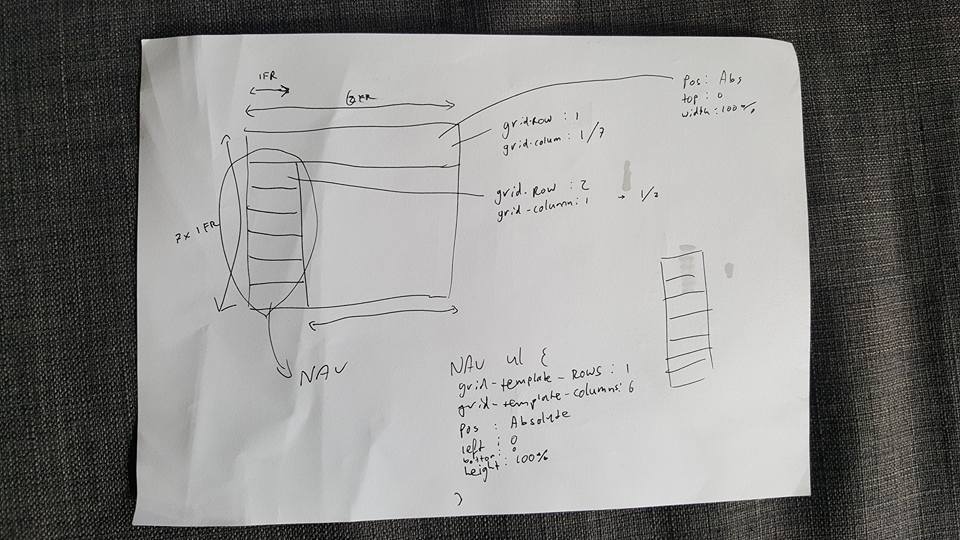 1FR
6 x FR
Pos: Abs
top: 0
width: 100%
grid-row: 1
grid-colum: 1/7
grid-row: 2
grid-column: 1 → 1/2
7 x 1 FR
NAV
NAV ul {
grid-template-rows: 1
grid-template-columns: 6
Pos: Absolute
left: 0
bottom: 0
height: 100%
}